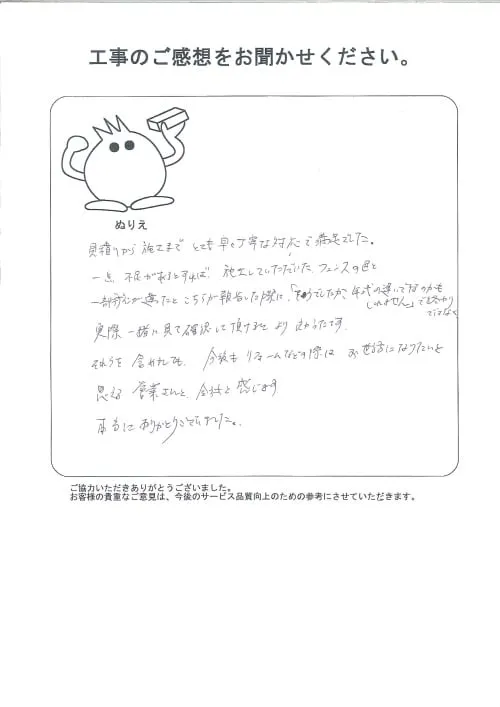 工事のご感想をお聞かせください。
ぬりえ
見積りから施工まで とても早く丁寧な対応で満足でした。
一点 不足があるとすれば、施工していただいた フェンスの色と
一部部分が違ったとこちらが報告した際に、「そうでしたか、年代の違いでなのかも
しれません」で終わり
でなく
実際 一緒に見て確認して頂けると より よかったです。
それらを含めても、今後も リフォームなどの際は お世話になりたいと
思える 営業さんと、会社と感じます。
本当にありがとうございました。
ご協力いただきありがとうございました。
お客様の貴重なご意見は、今後のサービス品質向上のための参考にさせていただきます。